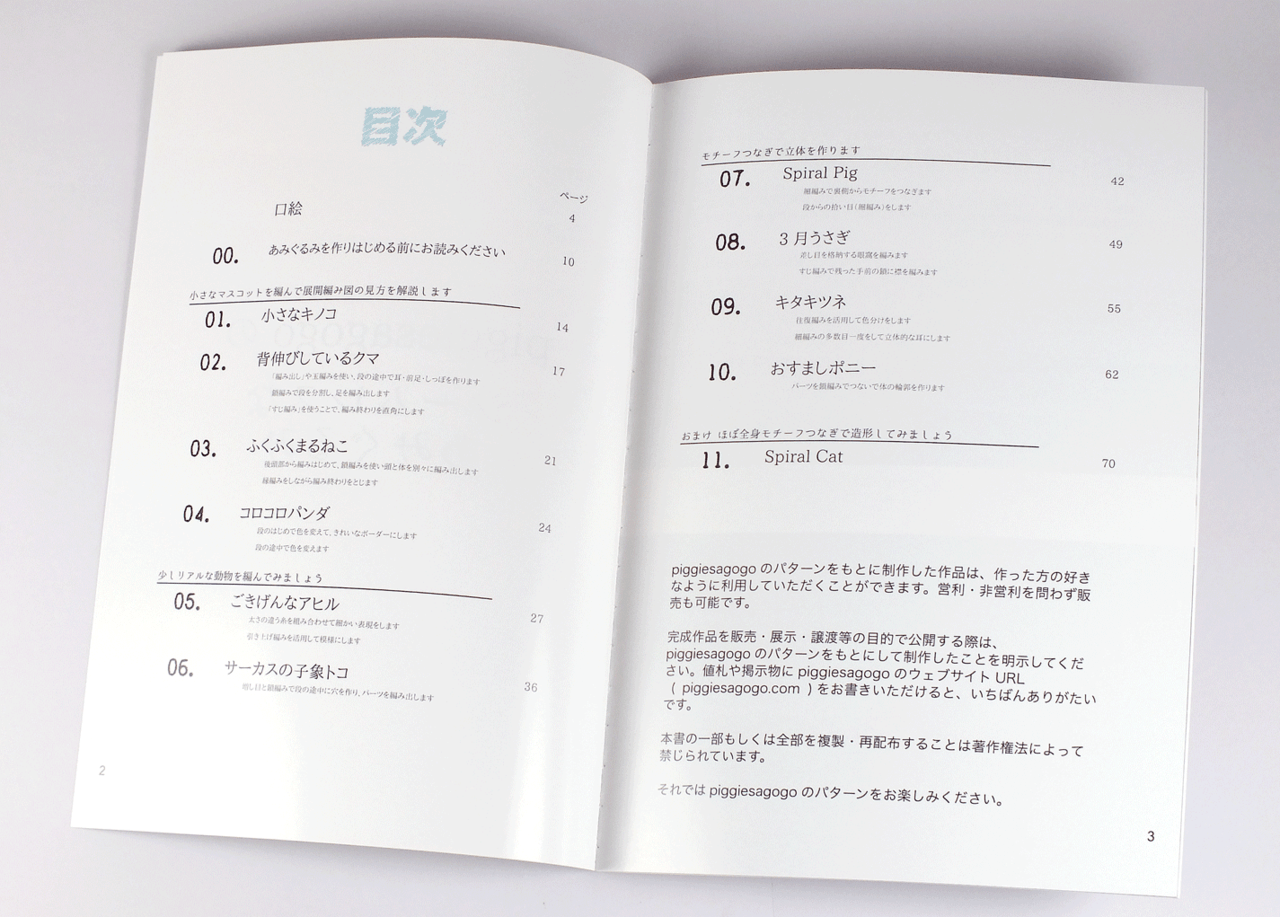 目次
ページ
口絵 4
00. あみぐるみを作りはじめる前にお読みください 10
小さなマスコットを編んで展開編み図の見方を解説します
01. 小さなキノコ 14
02. 背伸びしているクマ 17
「編み出し」や玉編みを使い、段の途中で耳・前足・しっぽを作ります
鎖編みで段を分割し、足を編み出します
「すじ編み」を使うことで、編み終わりを直角にします
03. ふくふくまるねこ 21
後頭部から編みはじめて、鎖編みを使い頭と体を別々に編み出します
縁編みをしながら編み終わりをとじます
04. コロコロパンダ 24
段のはじめで色を変えて、きれいなボーダーにします
段の途中で色を変えます
少しリアルな動物を編んでみましょう
05. ごきげんなアヒル 27
太さの違う糸を組み合わせて細かい表現をします
引き上げ編みを活用して模様にします
06. サーカスの子象トコ 36
増し目と鎖編みで段の途中に穴を作り、パーツを編み出します
2
モチーフつなぎで立体を作ります
07. Spiral Pig 42
細編みで裏側からモチーフをつなぎます
段からの拾い目（細編み）をします
08. 3月うさぎ 49
差し目を格納する眼窩を編みます
すじ編みで残った手前の鎖に襟を編みます
09. キタキツネ 55
往復編みを活用して色分けをします
細編みの多数目一度をして立体的な耳にします
10. おすましポニー 62
パーツを鎖編みでつないで体の輪郭を作ります
おまけ ほぼ全身モチーフつなぎで造形してみましょう
11. Spiral Cat 70
piggiesagogo のパターンをもとに制作した作品は、作った方の好き
なように利用していただくことができます。営利・非営利を問わず販
売も可能です。
完成作品を販売・展示・譲渡等の目的で公開する際は、
piggiesagogo のパターンをもとにして制作したことを明示してくだ
さい。値札や掲示物に piggiesagogo のウェブサイト URL
( piggiesagogo.com ) をお書きいただけると、いちばんありがたい
です。
本書の一部もしくは全部を複製・再配布することは著作権法によって
禁じられています。
それでは piggiesagogo のパターンをお楽しみください。
3